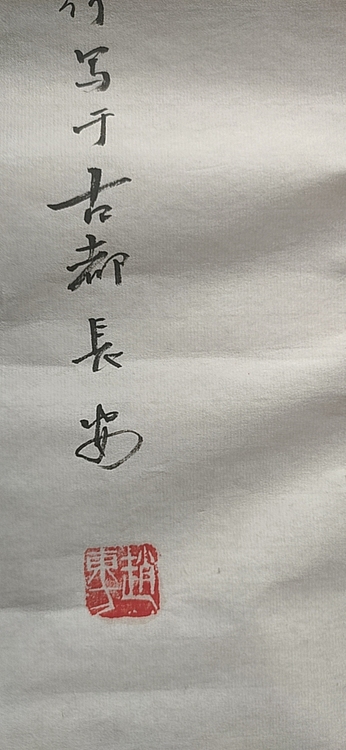 写于古都長安
趙
東